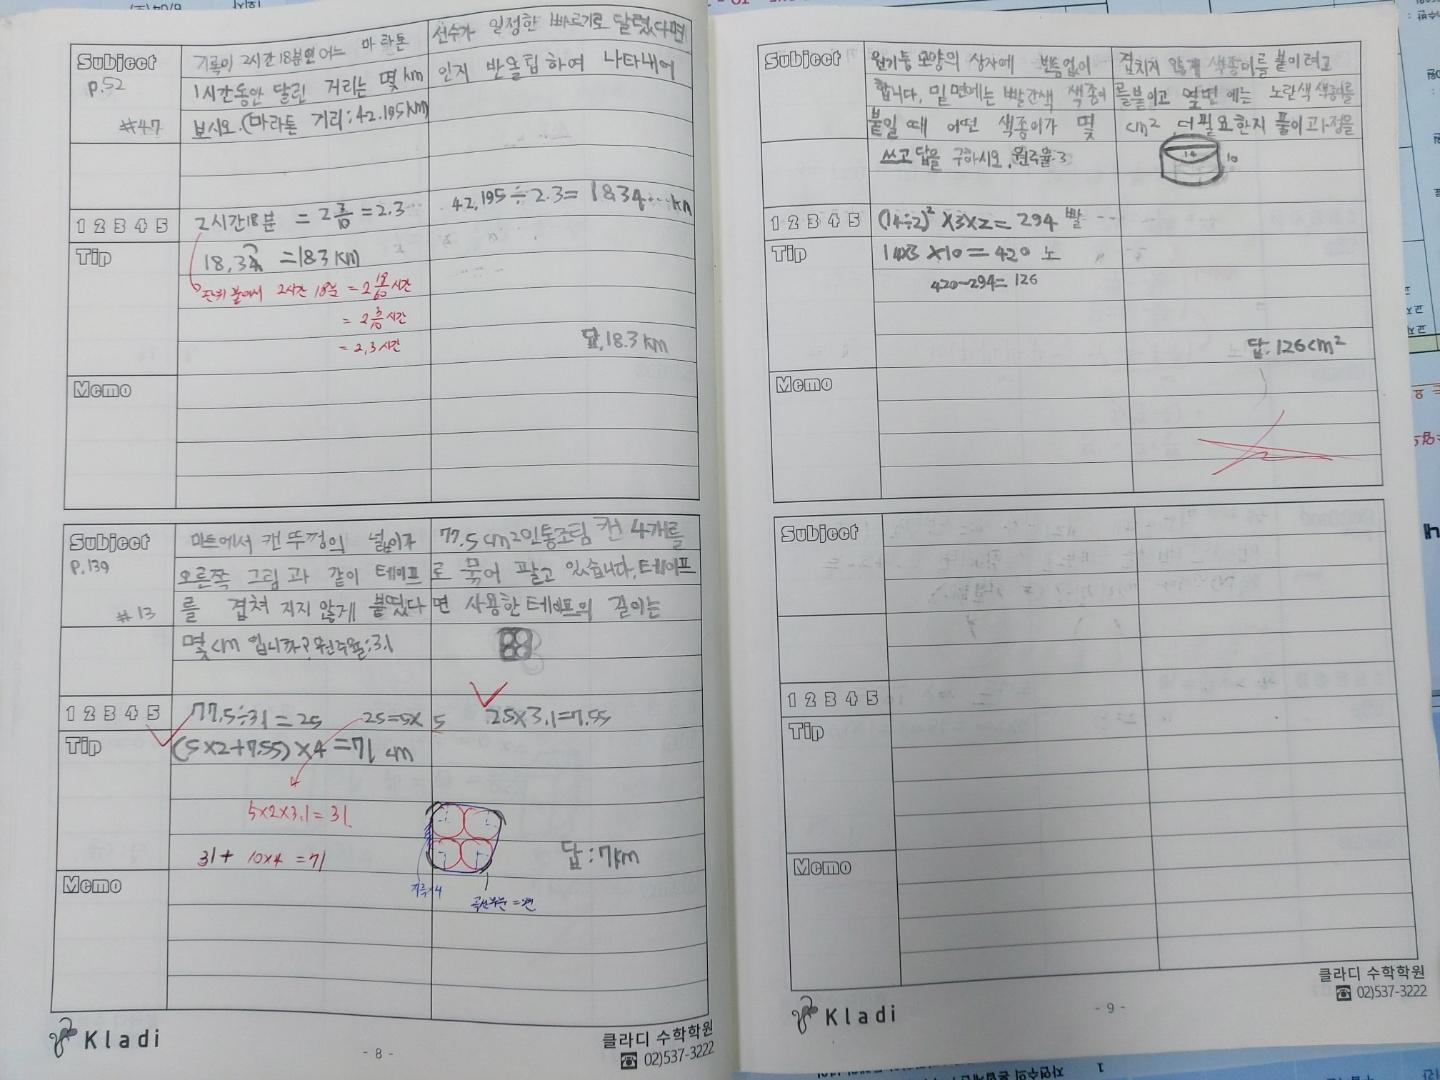 Subject
p.52
#47
기록이 2시간18분인 어느 마라톤 선수가 일정한 빠르기로 달렸다면
1시간동안 달린 거리는 몇 km인지 반올림 하여 나타내어
보시오.(마라톤 거리:42.195km)
1 2 3 4 5
2시간18분 = 2 = 2.3
42.195÷2.3= 18.34...km
Tip
18.3 =18.3 km
2시간 18분 = 2 18/60 시간
= 2 3/10 시간
= 2.3시간
답. 18.3 km
Memo
Subject
p.139
#13
마트에서 캔 뚜껑의 넓이가 77.5cm2인 통조림 캔 4개를
오른쪽 그림 과 같이 테이프로 묶어 팔고 있습니다. 테이프
를 겹쳐 지지 않게 붙였다면 사용한 테이프의 길이는
몇 cm 입니까? 원주율:3.1
1 2 3 4 5
77.5÷3.1=25 25=5×5 25×3.1=7.55
Tip
(5×2+7.55)×4=71 cm
5×2×3.1=31
31+ 10×4 =71
답:71cm
Memo
Kladi
- 8 -
클라디 수학학원
02)537-3222
Subject
원기둥 모양의 상자에 빈틈없이 겹치지 않게 색종이를 붙이려고
합니다. 밑면에는 빨간색 색종이를 붙이고 옆면 에는 노란색 색종이를
붙일 때 어떤 색종이가 몇 cm² 더 필요한지 풀이과정을
쓰고 답을 구하시오. 원주율:3
14
10
1 2 3 4 5
(14÷2)²×3×2=294 빨
Tip
14×3×10=420 노
420-294=126
답. 126cm²
Memo
Subject
1 2 3 4 5
Tip
Memo
Kladi
- 9 -
클라디 수학학원
02)537-3222